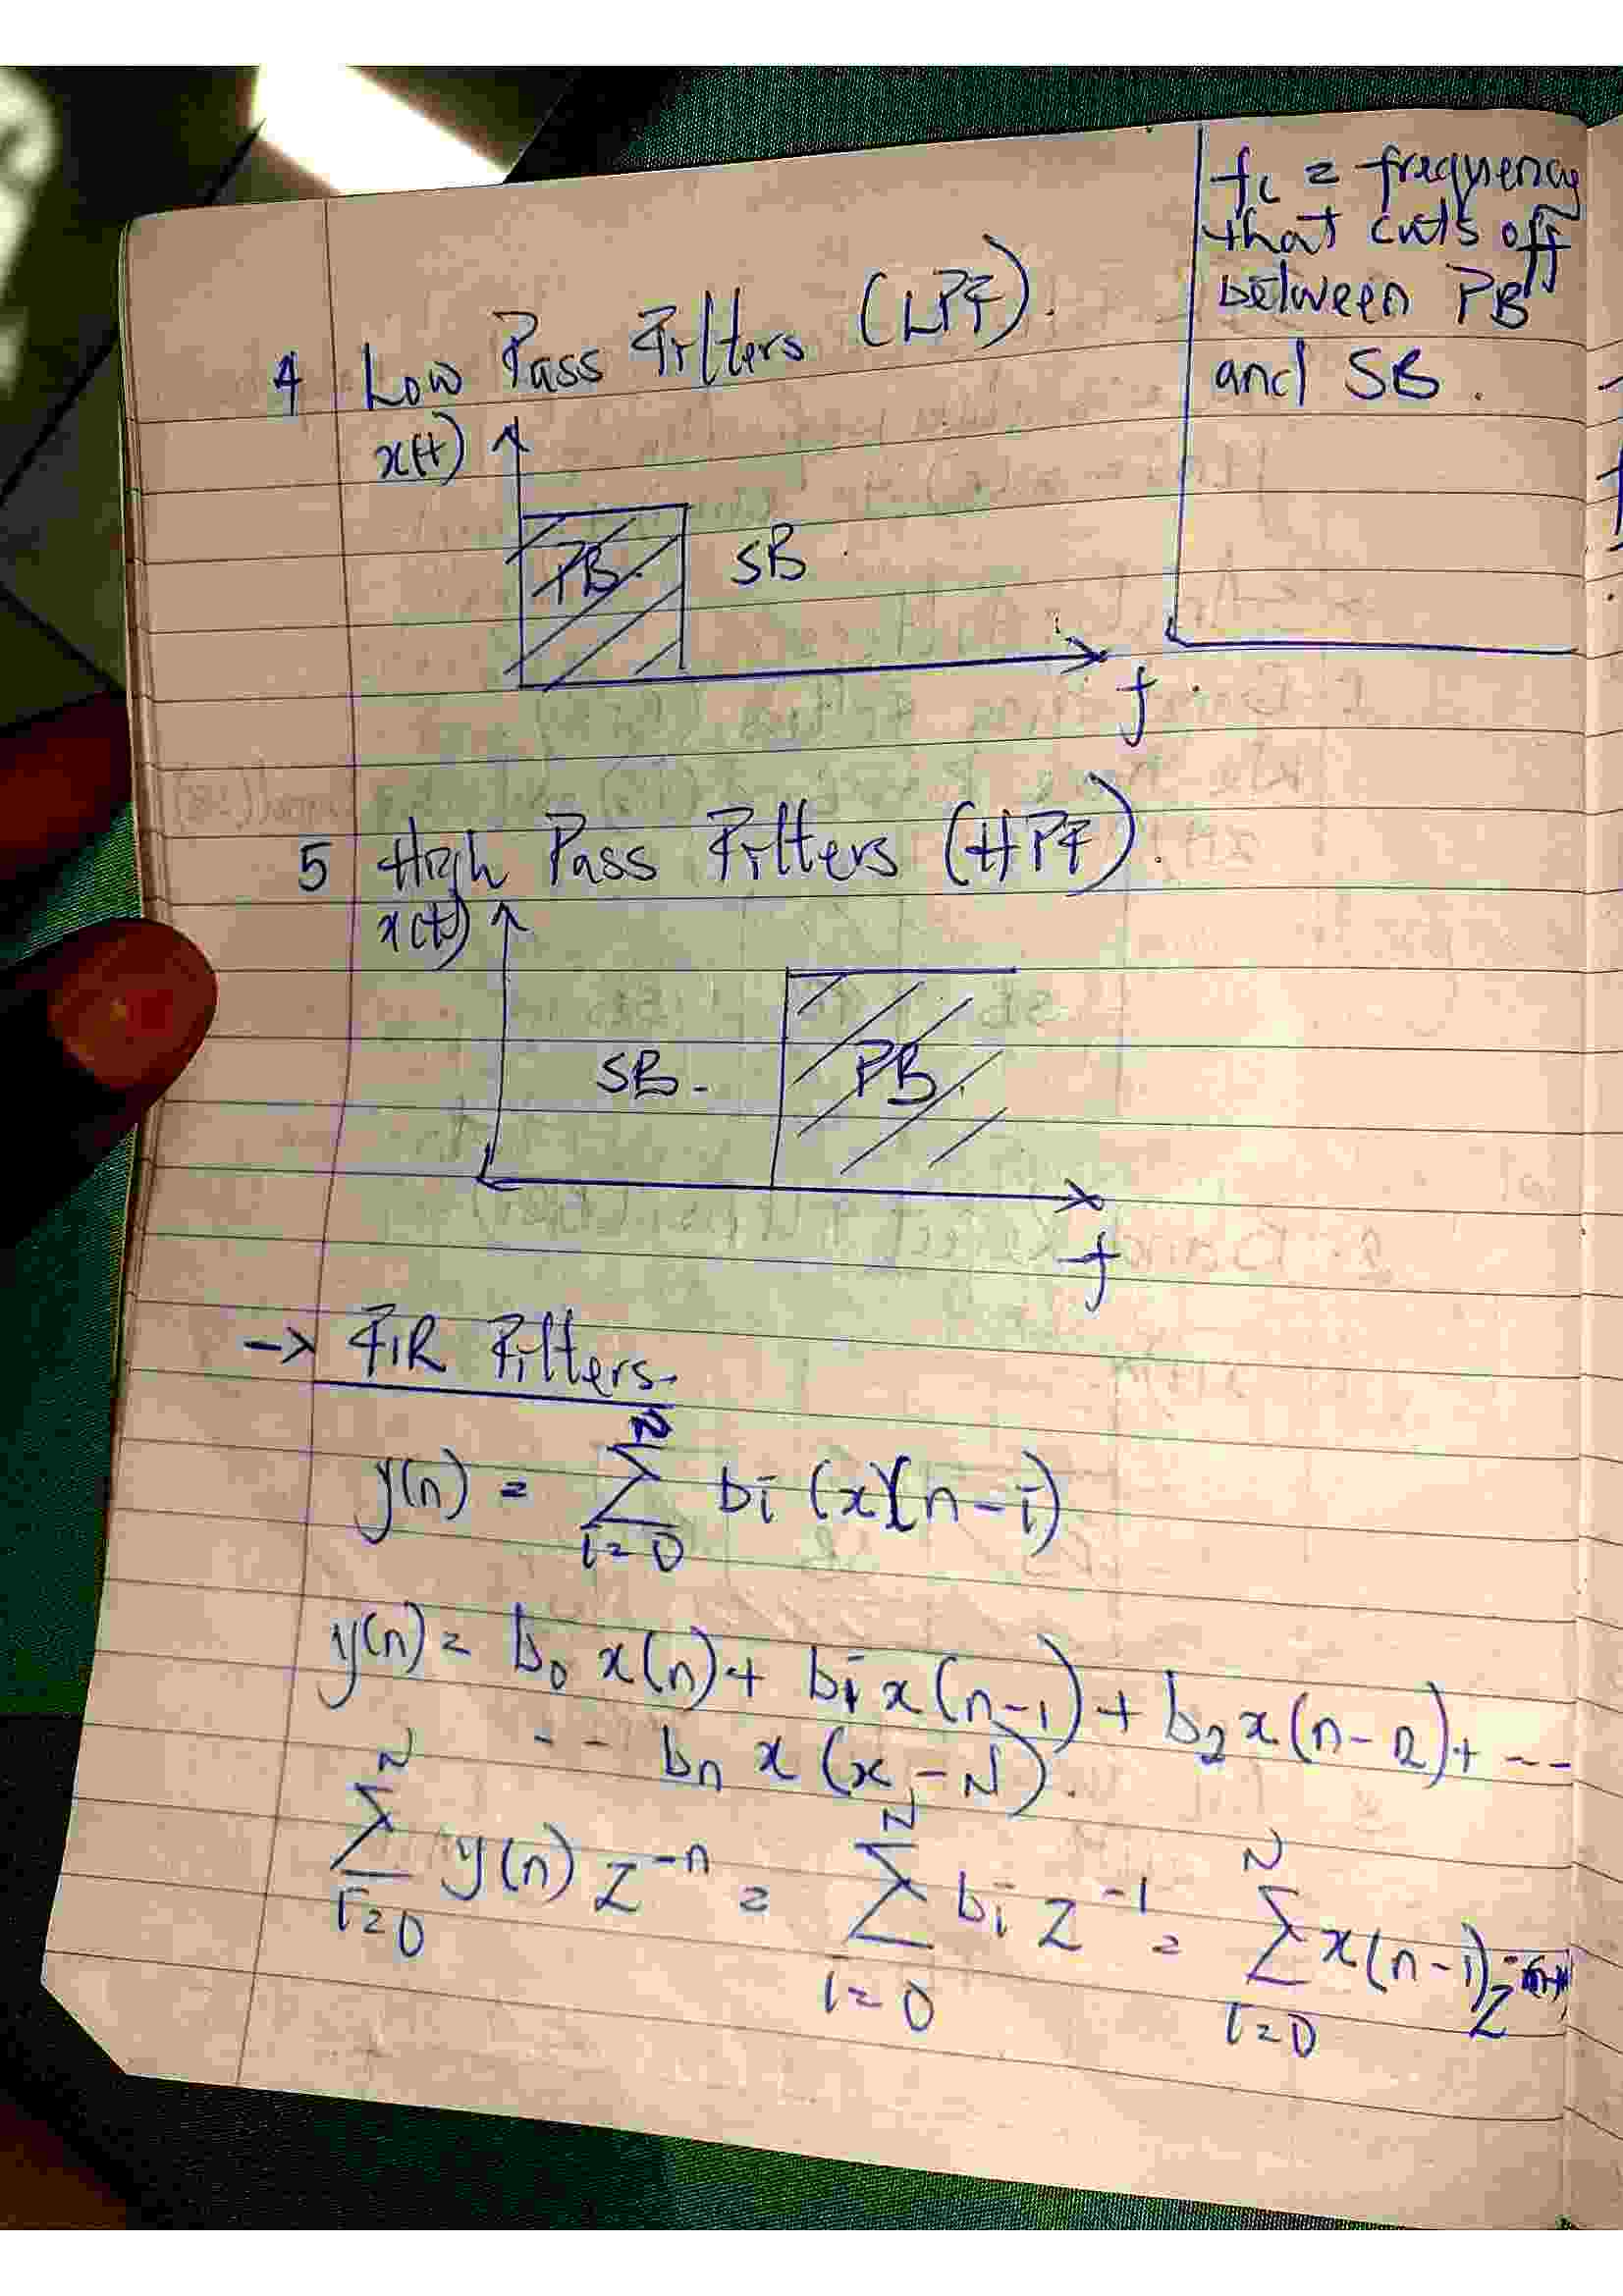 fc = frequency
that cuts off
between PB
and SB.
4 Low Pass Filters (LPF).
x(t)
PB. SB
f
5 High Pass Filters (HPF).
x(t)
SB. PB.
f
-> FIR Filters.
y(n) = N∑i=0 bi (x)(n-i)
y(n) = b0 x(n) + b1 x(n-1) + b2 x(n-2) + ---
-- bn x (x-N).
N∑i=0 y(n) z^-n = N∑i=0 bi z^-1 = N∑i=0 x(n-1) z